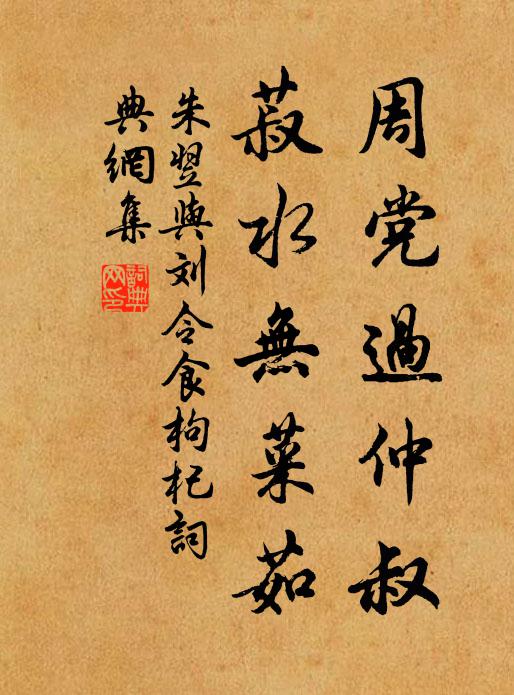 周党過仲叔
菽水無菜茹
朱翌與刘令食枸杞詞
典網集
詞典網印